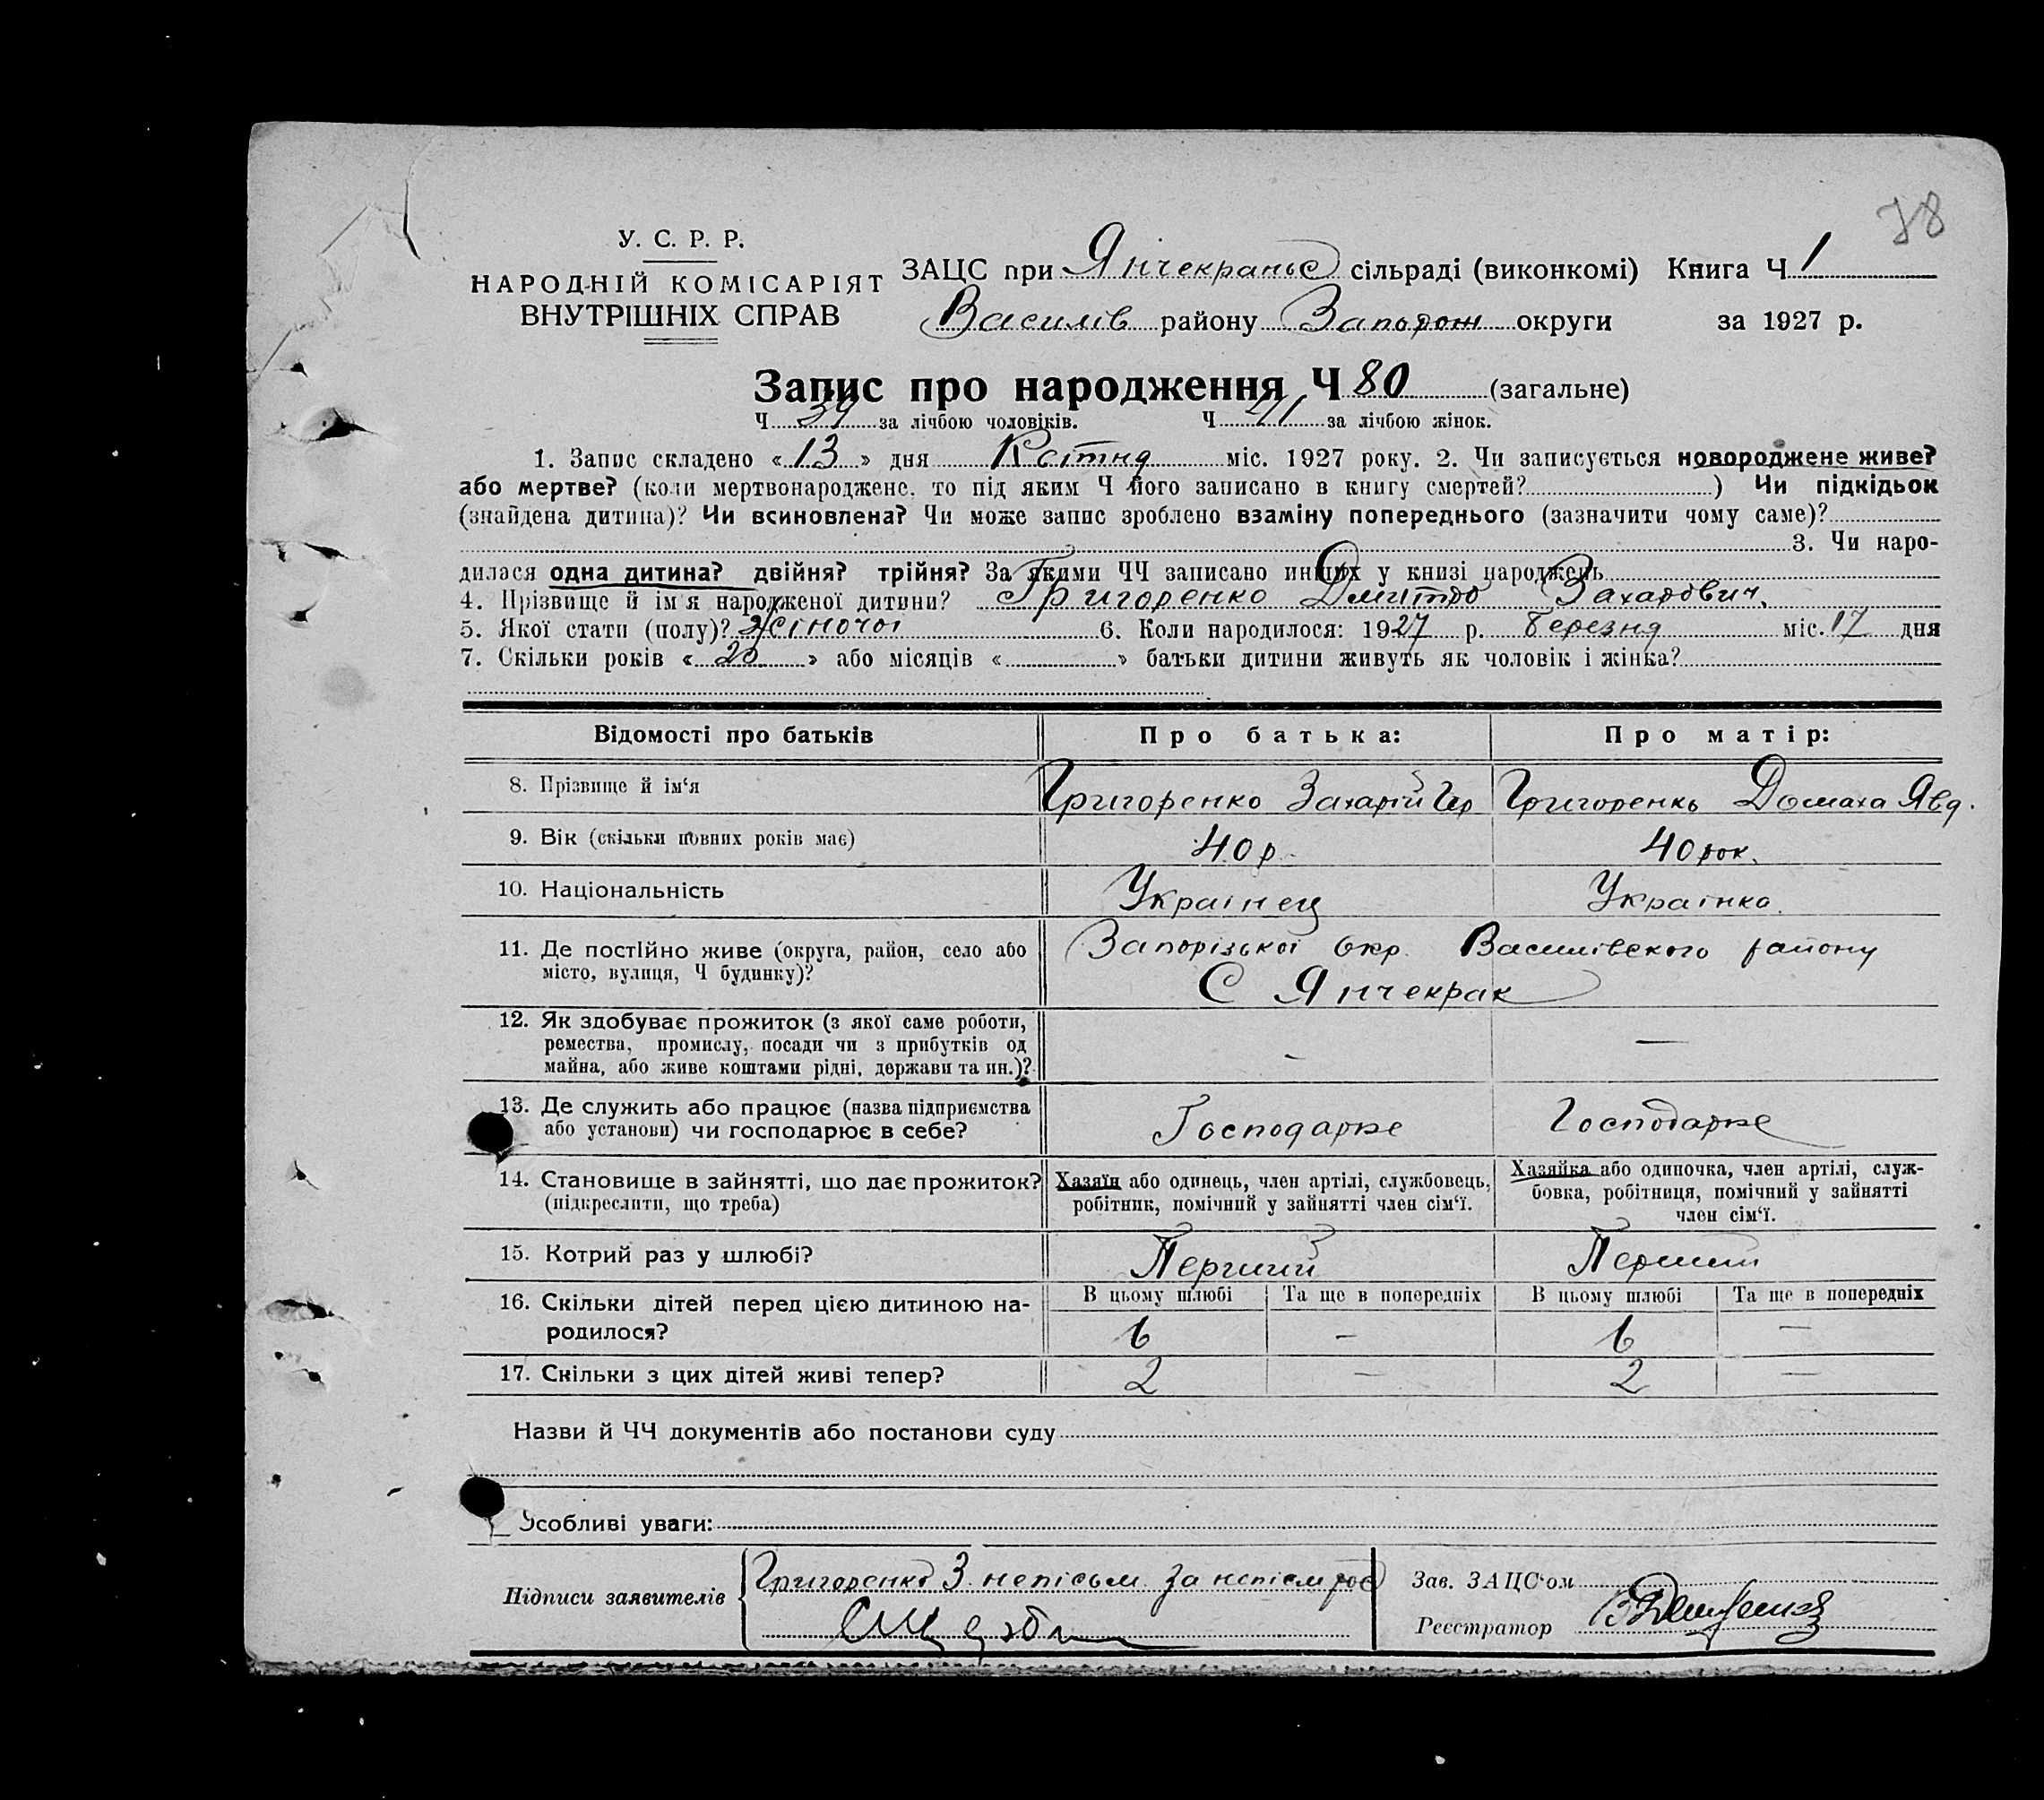 78
У. С. Р. Р.
НАРОДНІЙ КОМІСАРІЯТ
ВНУТРІШНІХ СПРАВ
ЗАЦС при Янчекраньс сільраді (виконкомі) Книга Ч 1
Василів району Запорож округи за 1927 р.
Запис про народження Ч 80 (загальне)
Ч 39 за лічбою чоловіків. Ч 41 за лічбою жінок.
1. Запис складено « 13 » дня Квітня міс. 1927 року. 2. Чи записується новороджене живе?
або мертве? (коли мертвонароджене, то під яким Ч його записано в книгу смертей? ) Чи підкідьок
(знайдена дитина)? Чи всиновлена? Чи може запис зроблено взаміну попереднього (зазначити чому саме)?
3. Чи наро-
дилася одна дитина? двійня? трійня? За якими ЧЧ записано инших у книзі народжень
4. Прізвище й ім'я народженої дитини? Григоренко Дмитро Захарович.
5. Якої стати (полу)? жіночої 6. Коли народилося: 1927 р. Березня міс. 17 дня
7. Скільки років « 20 » або місяців « » батьки дитини живуть як чоловік і жінка?
Відомості про батьків Про батька: Про матір:
8. Прізвище й ім‘я Григоренко Захарій Гр Григоренко Домаха Явд.
9. Вік (скільки повних років має) 40 р. 40 рок.
10. Національність Українец Українка.
11. Де постійно живе (округа, район, село або Запорізької Окр. Василівского району
місто, вулиця, Ч будинку)? С Янчекрак
12. Як здобуває прожиток (з якої саме роботи,
ремества, промислу, посади чи з прибутків од — —
майна, або живе коштами рідні, держави та ин.)?
13. Де служить або працює (назва підприємства
або установи) чи господарює в себе? Господарже Господарже
14. Становище в зайнятті, що дає прожиток? Хазяїн або одинець, член артілі, службовець, Хазяйка або одиночка, член артілі, служ-
(підкреслити, що треба) робітник, помічний у зайнятті член сім‘ї. бовка, робітниця, помічний у зайнятті
член сім‘ї.
15. Котрий раз у шлюбі? Перший Перший
16. Скільки дітей перед цією дитиною на- В цьому шлюбі Та ще в попередніх В цьому шлюбі Та ще в попередніх
родилося? 6 — 6 —
17. Скільки з цих дітей живі тепер? 2 — 2 —
Назви й ЧЧ документів або постанови суду
Особливі уваги:
Підписи заявителів Григоренко З. непісьм. За непісм рос Зав. ЗАЦС‘ом
Реєстратор